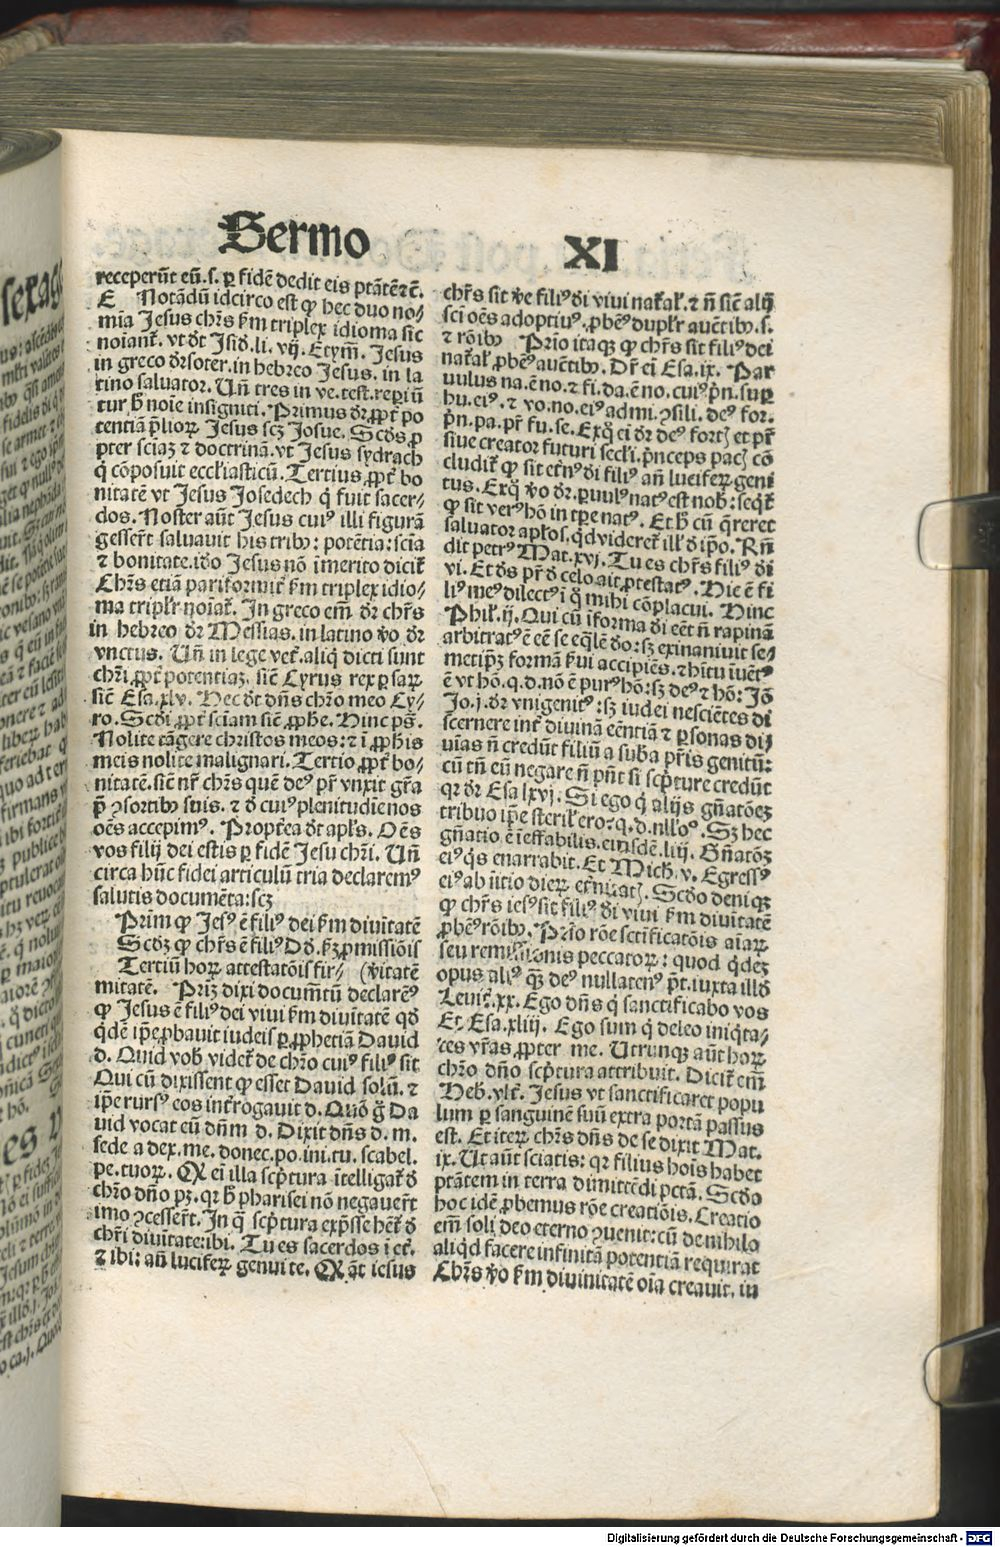 Sermo XI
receperūt eū.s. ꝑ fidē dedit eis ptātē ⁊c̄.
E Notādū idcirco est ꝙ hec duo no-
mīa Jesus chr̄s ẜm triplex idioma sic
noīant͛. vt dt̄ Jsid̄.li. vij. Etym̄. Jesus
in greco dr̄ soter. in hebreo Jesus. in la
tino saluator. Un̄ tres in ve.test.reꝑiū
tur h̄ noīe insigniti. Primus dr̄ ꝓpt͛ po
tentiā p̄liorꝝ Jesus scꝫ Josue. Scd̄s ꝓ
pter sciaꝫ ⁊ doctrinā. vt Jesus sydrach
q̇ cōposuit eccłiasticū. Tertius ꝓpt͛ bo
nitatē vt Jesus Josedech q̇ fuit sacer-
dos. Noster aūt Jesus cuiꝰ illi figurā
gessert͛ saluauit his tribꝰ: potētia: scīa
⁊ bonitate. iđo Jesus nō imerito dicit͛
Chr̄s etiā pariformit͛ ẜm triplex idio-
ma tripłr noīat͛. In greco em̄ dr̄ chr̄s
in hebreo dr̄ Messias. in latino v̄o dr̄
vnctus. Un̄ in lege vet͛. aliq̇ dicti sunt
chr̄i ꝓpt͛ potentiaꝫ. sic̄ Cyrus rex ꝑsarꝝ
sic̄ Esa.xlv. Hec dt̄ dn̄s chr̄o meo Cy-
ro. Scd̄i ꝓpt͛ sciam sic̄ ꝓph̄e. Hinc ps̄.
Nolite tāgere christos meos: ⁊ ī ꝓphis
meis nolite malignari. Tertio ꝓpt͛ bo-
nitatē. sic̄ nr̄ chr̄s quē deꝰ pr̄ vnxit gr̄a
p̄ ꝯsortibꝰ suis. ⁊ đ cuiꝰ plenitudīe nos
oēs accepimꝰ. Propt͛ea dt̄ apłs. Oēs
vos filij dei estis ꝑ fidē Jesu chr̄i. Un̄
circa hūc fidei articulū tria declaremꝰ
salutis documēta: scꝫ
Prim̄ ꝙ Jesꝰ ē filiꝰ dei ẜm diuītatē
Scd̄ꝫ ꝙ chr̄s ē filiꝰ Dđ. ẜꝫ ꝓmissiōis
Tertiū horꝝ attestatōis fir- (v̄itatē
mitatē. Priꝫ dixi documn̄tū declarēꝰ
ꝙ Jesus ē filiꝰ dei vivi ẜm diuītatē qđ
q̇dē ip̄e ꝓbauit iudeis ꝑ ꝓphetiā Dauid
d. Quid vob̄ videt͛ de chr̄o cuiꝰ filiꝰ sit
Qui cū dixissent ꝙ esset Dauid solū. ⁊
ip̄e rursꝰ eos int͛rogauit d. Quō g̊ Da
uid vocat eū dn̄m d. Dixit dn̄s d. m.
sede a dex. me. donec. po. ini. tu. scabel.
pe. tuorꝝ. Qꝫ eī illa scp̄tura ītelligat͛ đ
chr̄o dn̄o pꝫ. qꝛ h̄ pharisei nō negauert͛
imo ꝯcessert͛. In q̄ scp̄tura exp̄sse het͛ đ
chr̄i diuītate: ibi. Tu es sacerdos ī et͛.
⁊ ibi: an̄ luciferꝝ genui te. Qꝫ āt iesus
chr̄s sit v̄e filiꝰ di vivi nat͛ał. ⁊ n̄ sic̄ alij
sci oēs adoptiuꝰ. ꝓbēꝰ dupłr auctībꝰ. s.
⁊ rōibꝰ Prīo itaqꝫ ꝙ chr̄s sit filiꝰ dei
nat͛ał ꝓbēꝰ auctībꝰ. Dr̄ eī Esa.ix. Par
uulus na. ē no. ⁊ fi. da. ē no. cuiꝰ p̄n. suꝑ
hu. eiꝰ. ⁊ vo. no. eiꝰ admi. ꝯsili. deꝰ for.
p̄n. pa. pr̄ fu. se. Exq̇ eī dr̄ deꝰ fort͛ et pr̄
siue creator futuri secłi. p̄nceps pac͛ cō
cludit͛ ꝙ sit et͛nꝰ di filiꝰ an̄ luciferꝝ geni
tus. Exq̇ v̄o dr̄. ꝑuulꝰ natꝰ est nob̄: seq̇t͛
ꝙ sit verꝰ hō in tp̄e natꝰ. Et h̄ cū q̄reret
saluator apłos. qđ videret͛ illꝭ đ ip̄o. Rn̄
dit petrꝰ Mat.xvj. Tu es chr̄s filiꝰ di
vi. Et ds̄ pr̄ đ celo ait ꝓtestatꝰ. Hic ē fi
liꝰ meꝰ dilectꝰ i q̊ mihi cōplacui. Hinc
Phił.ij. Qui cū iforma di eēt n̄ rapinā
arbitratꝰ ē eē se eq̄lē đo: sꝫ exinaniuit se-
metip̄ꝫ formā ẜui accipiēs. ⁊ hītu iuētꝰ
ē vt hō. q. d. nō ē purꝰ hō: sꝫ deꝰ ⁊ hō: Jō
Jo.j. dr̄ vnigenitꝰ: sꝫ iudei nesciētes di
scernere int͛ diuinā eēntiā ⁊ ꝑsonas di-
uīas n̄ credūt filiū a suba pr̄is genitū:
cū tn̄ eū negare n̄ pn̄t si scp̄ture credūt
qꝛ dr̄ Esa lxvj. Si ego q̇ alijs gn̄atōeꝫ
tribuo ip̄e sterił ero: q. d. nlłoꝰ. Sꝫ hec
gn̄atio ē ieffabilis. eiusdē. liij. Gn̄atōꝫ
eiꝰ q̇s enarrabit. Et Mich̄. v. Egressꝰ
eiꝰ ab ītio dierꝝ et͛nitat͛. Scd̄o deniqꝫ
ꝙ chr̄s iesꝰ sit filiꝰ di vivi ẜm diuītatē
ꝓbēꝰ rōibꝰ. Prīo rōe sctificatōis aīarꝝ
seu remissionis peccatorꝝ: quod q̇deꝫ
opus aliꝰ q̄ꝫ deꝰ nullatenꝰ pt̄. iuxta illđ
Leuit͛.xx. Ego dn̄s q̇ sanctificabo vos
Et Esa.xliij. Ego sum q̇ deleo iniq̇ta-
tes vr̄as ꝓpter me. Utrunqꝫ aūt horꝝ
chr̄o dn̄o scp̄tura attribuit. Dicit͛ em̄
Heb̄. vlt͛. Jesus vt sanctificaret popu
lum ꝑ sanguinē suū extra portā passus
est. Et iterꝝ chr̄s dn̄s de se dixit Mat.
ix. Ut aūt sciatis: qꝛ filius hoīs habet
ptātem in terra dimittēdi pctā. Scd̄o
hoc idē ꝓbemus rōe creatiōis. Creatio
em̄ soli deo eterno ꝯuenit: cū de nihilo
aliq̇d facere infinitā potentiā requirat
Chr̄s v̄o ẜm diuinitatē oīa creauit. in
Digitalisierung gefördert durch die Deutsche Forschungsgemeinschaft - DFG